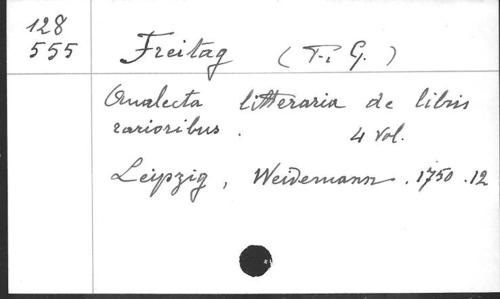 128
555
Freitag (F. G.)
Analecta litteraria de libris
rarioribus. 4 vol.
Leipzig, Weidemann. 1750. 12